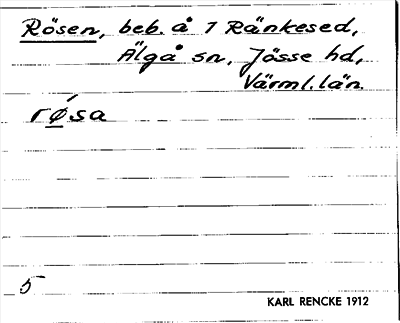 Rösen, beb. å 1 Ränkesed,
Älgå sn, Jösse hd,
Värml. län.
rǿsa
5
KARL RENCKE 1912